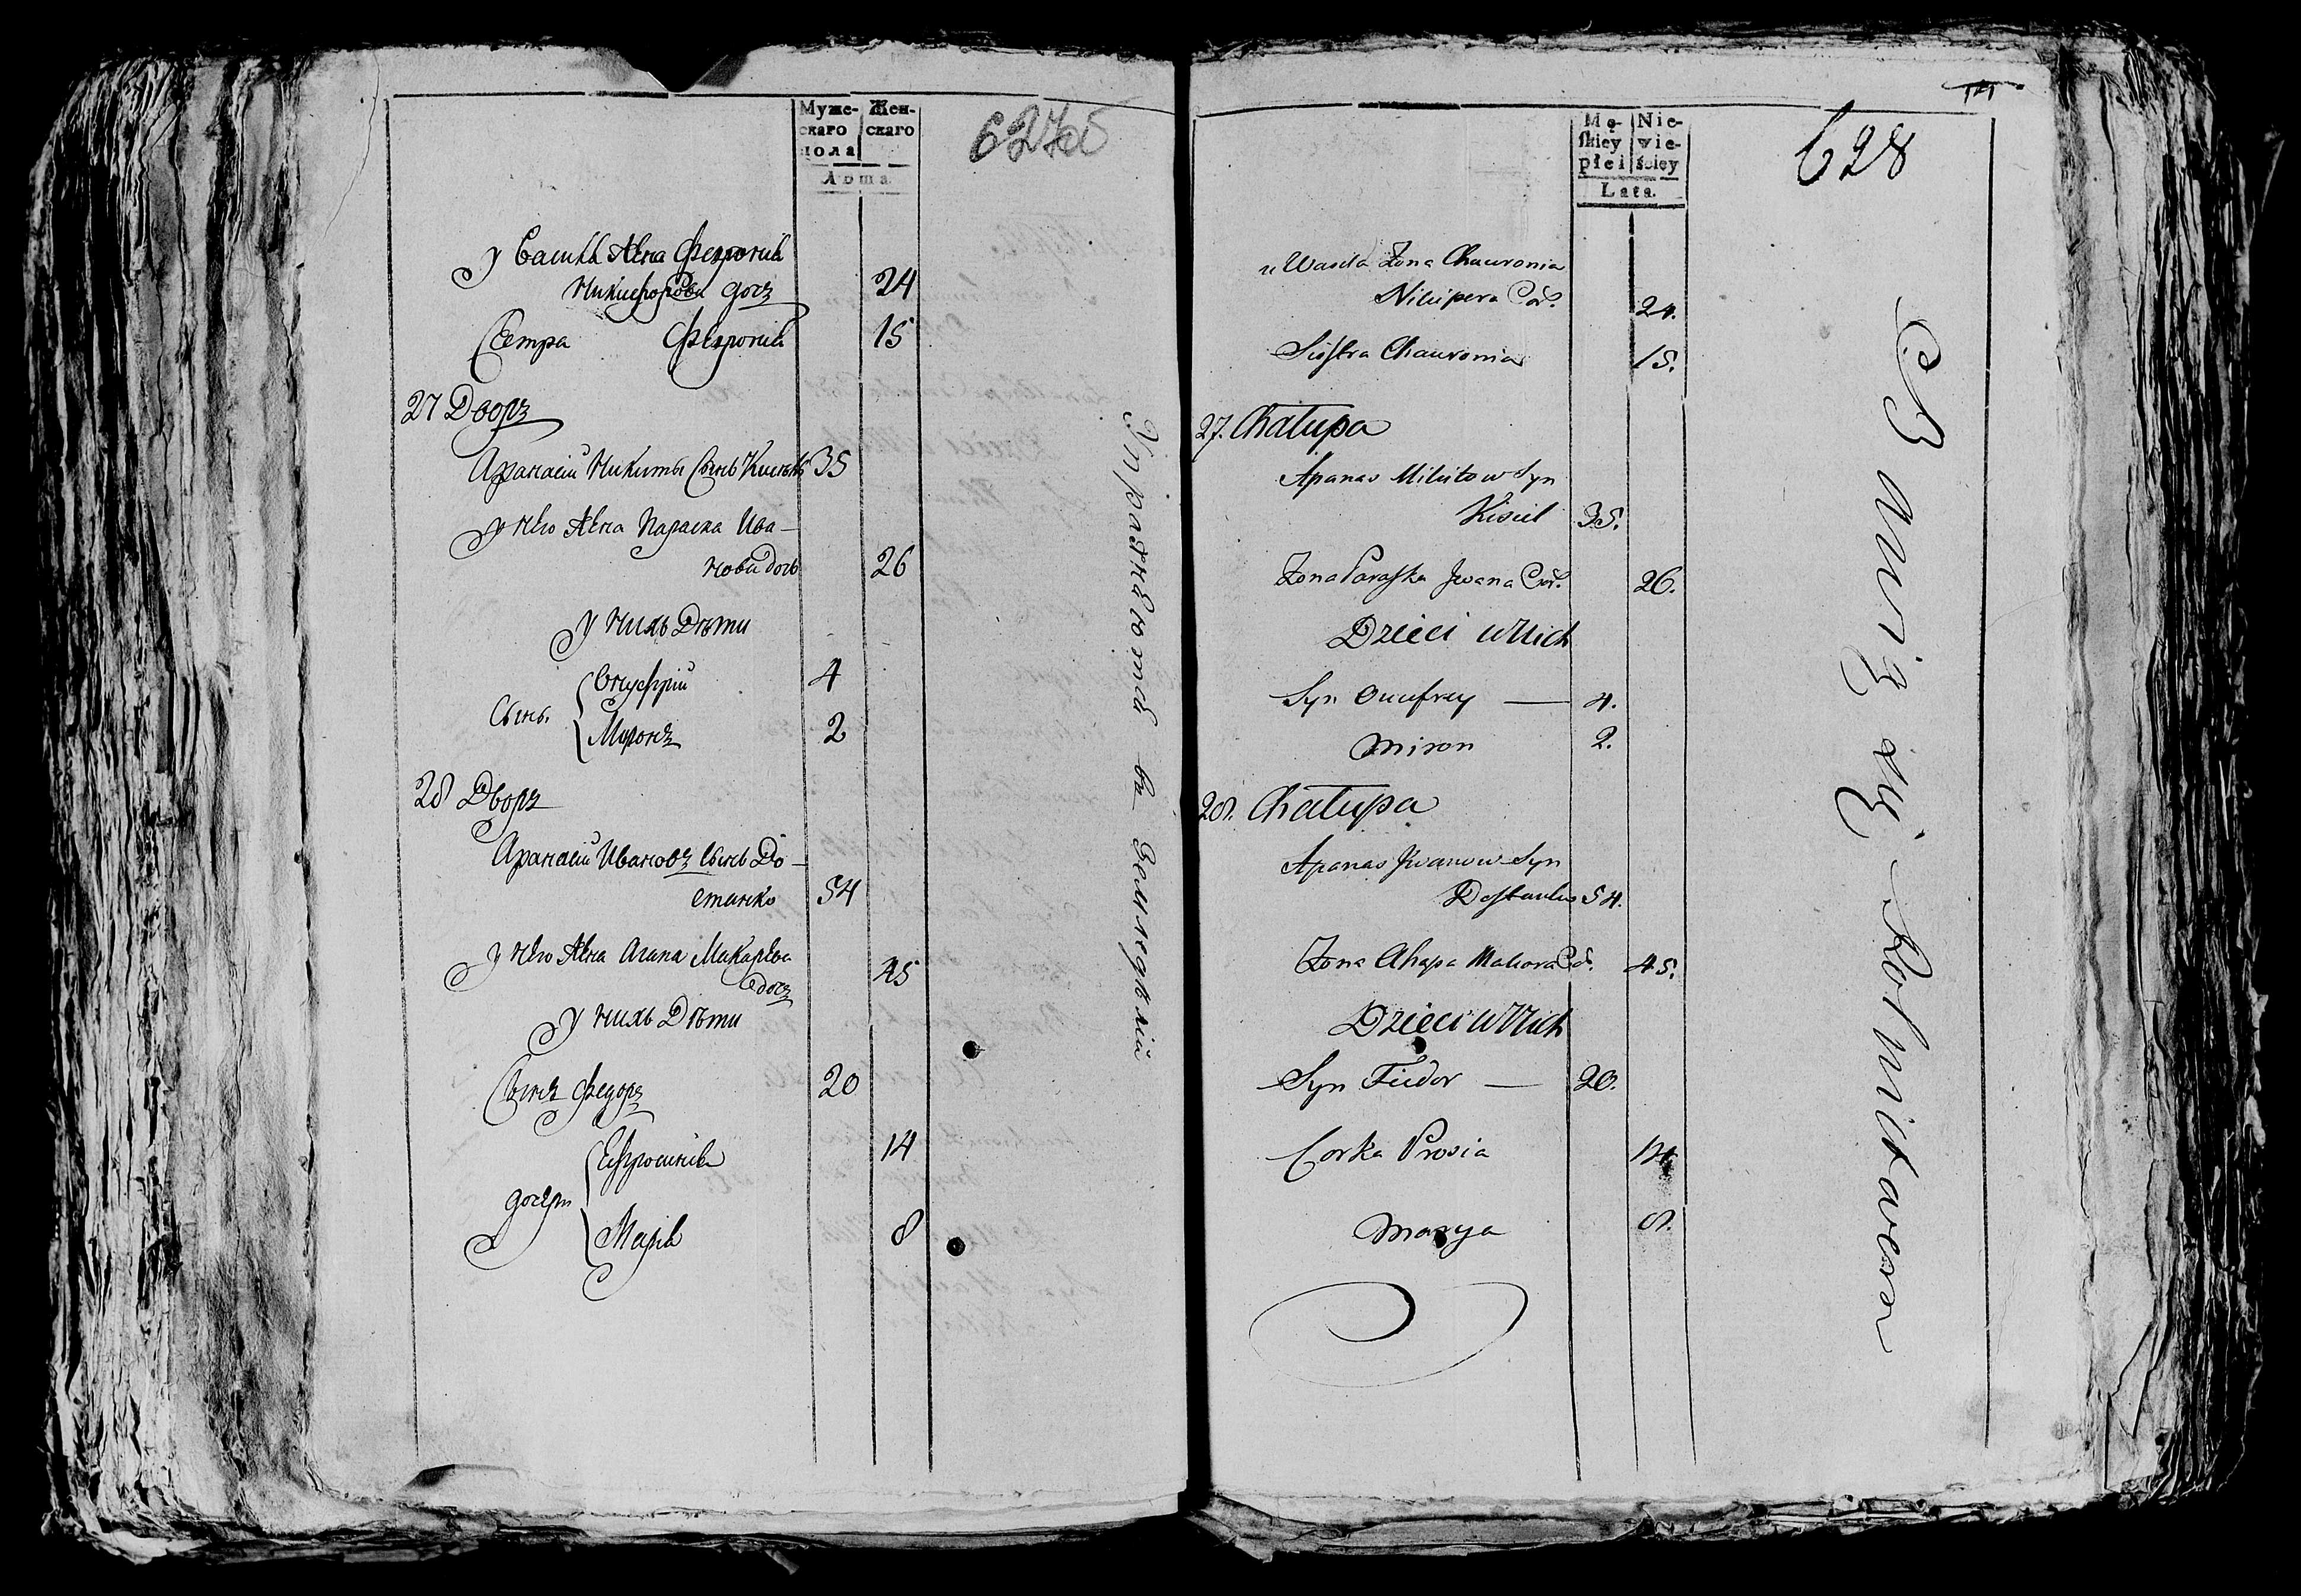 Муже-
скаго
пола
Жен-
скаго
Лѣта
627об
у Василя Жена Феѵрониѧ
Никифорова дочъ
24
Сестра Феѵрониѧ
15
27 Дворъ
Афанасій Никиты сынъ Кисель
35
у него Жена Параска Ива-
нова дочь
26
у нихъ Дѣти
Онуфрій
4
Сынъ.
Миронъ
2
28 Дворъ
Афанасій Ивановъ сынъ До-
станко
54
у него Жена Агапа Макарова
дочъ
45
у нихъ Дѣти
Сынъ Федоръ
20
Ефросиниѧ
14
дочери
Мариѧ
8
Упражнѧютсѧ въ Земледѣлій
Mę-
skiey
płci
Nie-
wie-
ściey
Lata.
628
u Wasila Zona Chauronia
Nikipera Cór.
24.
Siostra Chauronia
15.
27. Chałupa
Apanas Mikitow Syn
Kisiel
35.
Zona Paraska Jwana Cór.
26.
Dzieci u Nich
Syn Onufrey
4.
Miron
2.
28. Chałupa
Apanas Jwanow Syn
Dostanko
54.
Zona Ahapa Makora Cór.
45.
Dzieci u Nich
Syn Fiedor
20.
Corka Prosia
14
Marya
8.
Bawią się Rolnictwem